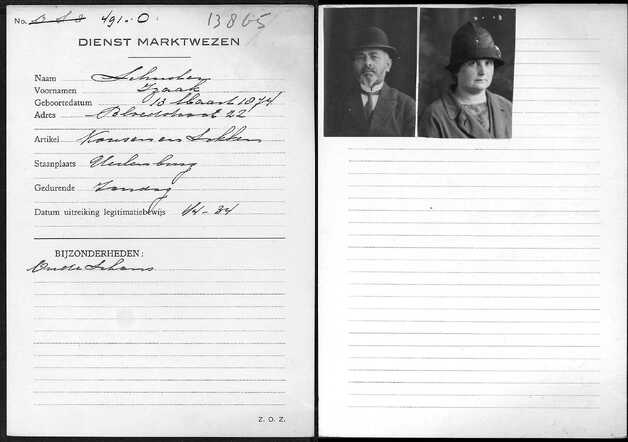 No. 258 491.O 13865
DIENST MARKTWEZEN
Naam Schuster
Voornamen Izaak
Geboortedatum 13 Maart 1874
Adres Bloedstraat 22
Artikel Kousen en Sokken
Staanplaats Uilenburg
Gedurende Zondag
Datum uitreiking legitimatiebewijs 1/4-34
BIJZONDERHEDEN:
Oude Schans
Z. O. Z.